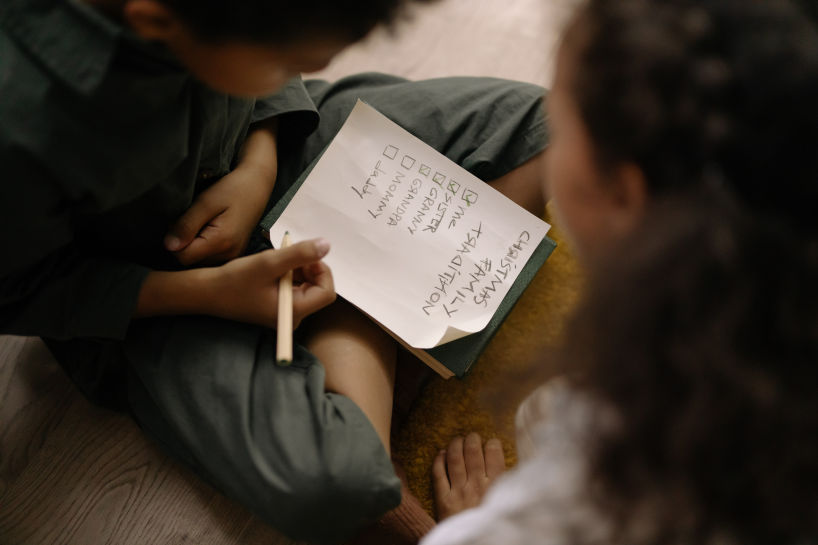 CHRISTMAS
FAMILY
TRADITION
me
SISTER
GRANNY
GRANDPA
MOMMY
daddy